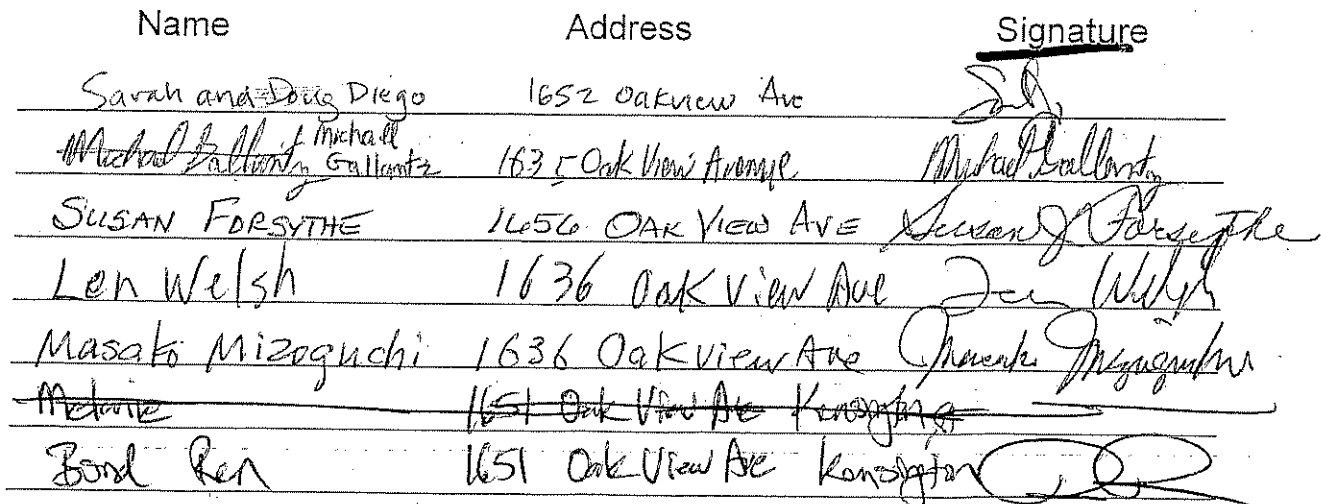 Name Address Signature
Sarah and Doug Diego 1652 Oakview Ave
Michael Gallantz Michael Gallantz 1635 Oak View Avenue Michael Gallantz
SUSAN FORSYTHE 1656 OAK VIEW AVE Susan J Forsythe
Len Welsh 1636 Oak View Ave Len Welsh
Masako Mizoguchi 1636 Oakview Ave Masako Mizoguchi
Melanie 1651 Oak View Ave Kensington
Bond Ren 1651 Oak View Ave Kensington